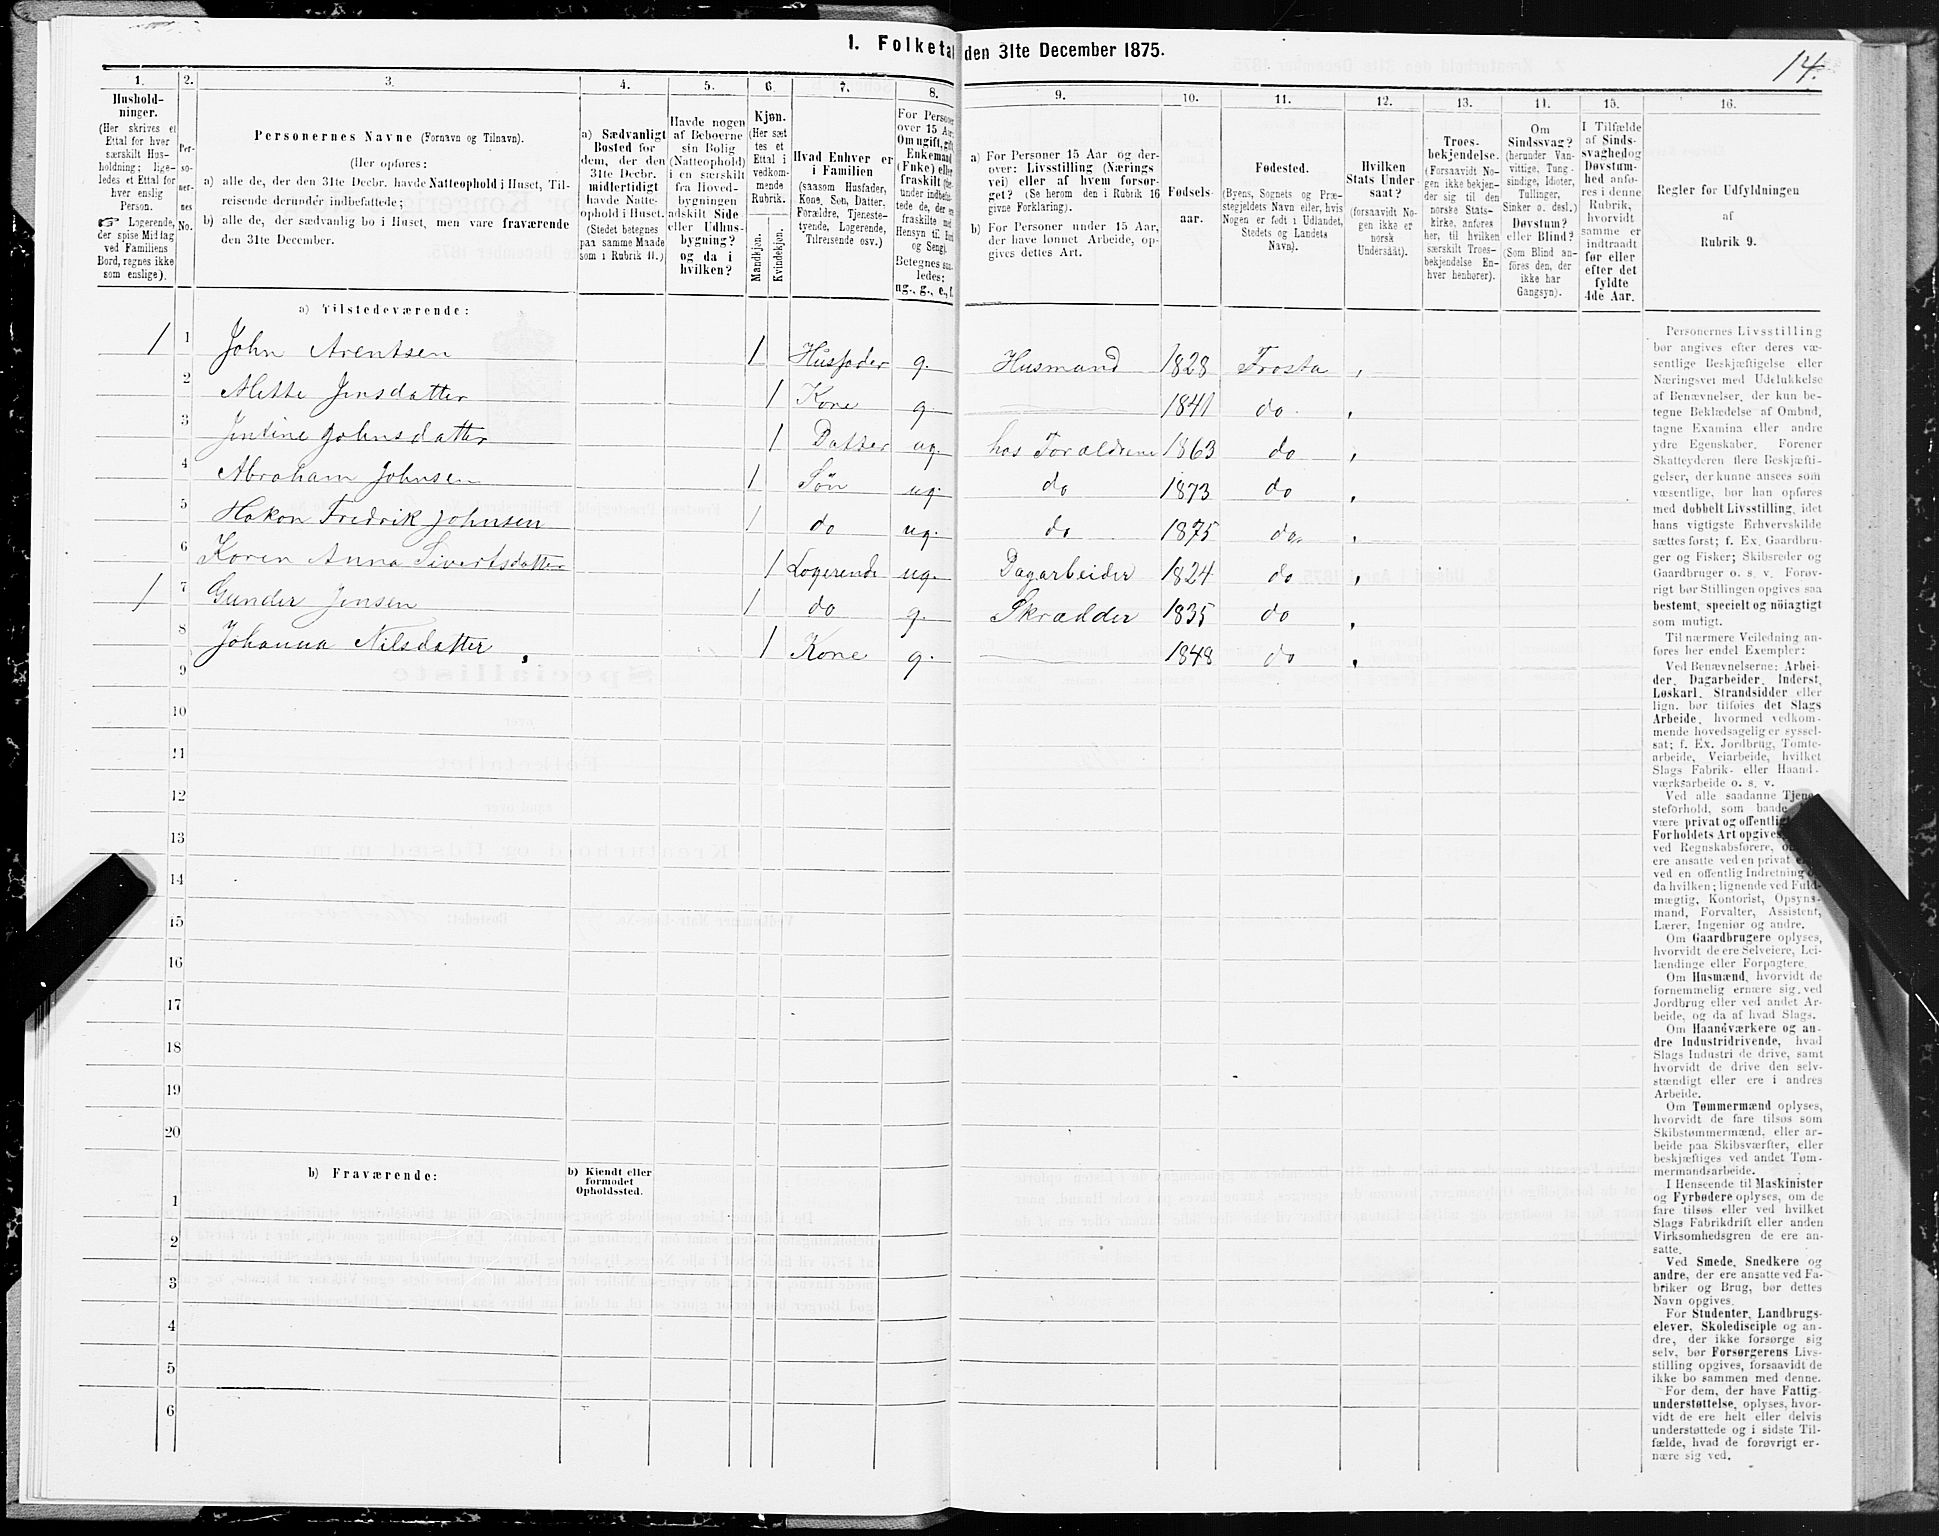 1. Folketal den 31te December 1875.
14.
1. 2. 3. 4. 5. 6. 7. 8. 9. 10. 11. 12. 13. 14. 15. 16.
Hushold-
ninger.
(Her skrives et
Ettal for hver
særskilt Hus-
holdning; lige-
ledes et Ettal for
hver enslig
Person.
☞ Logerende,
der spise Middag
ved Familiens
Bord, regnes ikke
som enslige).
Per-
so-
ner-
nes
No.
Personernes Navne (Fornavn og Tilnavn).
(Her opføres:
a) alle de, der den 31te Decbr. havde Natteophold i Huset, Til-
reisende derunder indbefattede;
b) alle de, der sædvanlig bo i Huset, men vare fraværende
den 31te December.
a) Sædvanligt
Bosted for
dem, der den
31te Decbr.
midlertidigt
havde Natte-
ophold i Huset.
(Stedet betegnes
paa samme Maade
som i Rubrik 11.)
Havde nogen
af Beboerne
sin Bolig
(Natteophold)
i en særskilt
fra Hoved-
bygningen
adskilt Side
eller Udhus-
bygning?
og da i
hvilken?
Kjøn.
(Her sæt
tes et
Ettal i
vedkom-
mende
Rubrik.
Mandkjøn.
Kvindekjøn.
Hvad Enhver er
i Familien
(saasom Husfader,
Kone, Søn, Datter,
Forældre, Tjeneste-
tyende, Logerende,
Tilreisende osv.)
For Personer
over 15 Aar:
Om ugift, gift,
Enkemand
(Enke) eller
fraskilt
ug., g., e., f.
a) For Personer 15 Aar og der-
over: Livsstilling (Nærings
vei) eller af hvem forsør-
get? (Se herom den i Rubrik 16
givne Forklaring).
b) For Personer under 15 Aar,
der have lønnet Arbeide, op-
gives dettes Art.
Fødsels-
aar.
Fødested.
(Byens, Sognets og Præ-
stegjeldets Navn eller, hvis
Nogen er født i Udlandet,
Stedets og Landets
Navn).
Hvilken
Stats Under-
saat?
(forsaavidt No-
gen ikke er
norsk
Undersaat).
Troes-
bekjendelse.
(Forsaavidt No-
gen ikke bekjen-
der sig til den
norske Stats-
kirke, anføres
her, til hvilken
særskilt Troes-
bekjendelse En-
hver henhører).
Om
Sindssvag?
(herunder Van-
vittige, Tung-
sindige, Idioter,
Tullinger,
Sinker o. desl.)
Døvstum?
eller Blind?
(Som Blind an-
føres den, der
ikke har
Gangsyn).
I Tilfælde
af Sinds-
svaghed og
Døvstum-
hed anfø-
res i denne
Rubrik,
hvorvidt
samme er
indtraadt
før eller
efter det
fyldte
4de Aar.
Regler for Udfyldningen
af
Rubrik 9.
a) Tilstedeværende:
1 1 John Arentsen 1 Husfader g. Husmand 1828 Frosta
2 Mette Jensdatter 1 Kone g. 1841 do
3 Jentine Johnsdatter 1 Datter ug. hos Foraldrene 1863 do
4 Abraham Johnsen 1 Søn ug. do 1873 do
5 Hakon Fredrik Johnsen 1 do ug. do 1875 do
6 Karen Anna Sivertsdatter 1 Logerende ug. Dagarbeider 1824 do
1 7 Gunder Jensen 1 do g. Skrædder 1835 do
8 Johanna Nilsdatter 1 Kone g. 1848 do
9
10
11
12
13
14
15
16
17
18
19
20
b) Fraværende:
b) Kjendt eller
formodet
Opholdssted.
1
2
3
4
5
6
Personernes Livsstilling
bør angives efter deres væ-
sentlige Beskjæftigelse eller
Næringsvei med Udelukkelse
af Benævnelser, der kun be-
tegne Beklædelse af Ombud,
tagne Examina eller andre
ydre Egenskaber. Forener
Skatteyderen flere Beskjæfti-
gelser, der kunne ansees som
væsentlige, bør han opføres
med dobbelt Livsstilling, idet
hans vigtigste Erhvervskilde
sættes først; f. Ex. Gaardbru-
ger og Fisker; Skibsreder og
Gaardbruger o. s. v. Forøv-
rigt bør Stillingen opgives saa
bestemt, specielt og nøiagtigt
som muligt.
Til nærmere Veiledning an-
føres her endel Exempler:
Ved Benævnelserne: Arbei-
der, Dagarbeider, Inderst,
Løskarl, Strandsidder eller
lign. bør tilføies det Slags
Arbeide, hvormed vedkom-
mende hovedsagelig er syssel-
sat; f. Ex. Jordbrug, Tomte-
arbeide, Veiarbeide, hvilket
Slags Fabrik- eller Haand-
værksarbeide o. s. v.
Ved alle saadanne Tjene-
steforhold, som baade
være privat og offentlig
Forholdets Art opgives,
ved Regnskabsførere,
ere ansatte ved en privat
ved en offentlig Indretning
da hvilken; lignende ved Fuld-
mægtig, Kontorist, Opsyns-
mand, Forvalter, Assistent,
Lærer, Ingeniør og andre.
Om Gaardbrugere oplyses,
hvorvidt de ere Selveiere, Lei-
lændinge eller Forpagtere.
Om Husmænd, hvorvidt de
fornemmelig ernære sig ved
Jordbrug eller ved andet Ar-
beide, og da af hvad Slags.
Om Haandværkere og an-
dre Industridrivende, hvad
Slags Industri de drive, samt
hvorvidt de drive den selv-
stændigt eller ere i andres
Arbeide.
Om Tømmermænd oplyses,
hvorvidt de fare tilsøs som
Skibstømmermænd, eller ar-
beide paa Skibsværfter, eller
beskjæftiges ved andet Tøm-
mermandsarbeide.
I Henseende til Maskinister
og Fyrbødere oplyses, om de
fare tilsøs eller ved hvilket
Slags Fabrikdrift eller anden
Virksomhedsgren de ere an-
satte.
Ved Smede, Snedkere og
andre, der ere ansatte ved Fa-
briker og Brug, bør dettes
Navn opgives.
For Studenter, Landbrugs-
elever, Skoledisciple og an-
dre, der ikke forsørge sig
selv, bør Forsørgerens Livs-
stilling opgives, forsaavidt de
ikke bo sammen med denne.
For dem, der have Fattig-
understøttelse, oplyses, hvor-
vidt de ere helt eller delvis
understøttede og i sidste Til-
fælde, hvad de forøvrigt er-
nære sig ved.